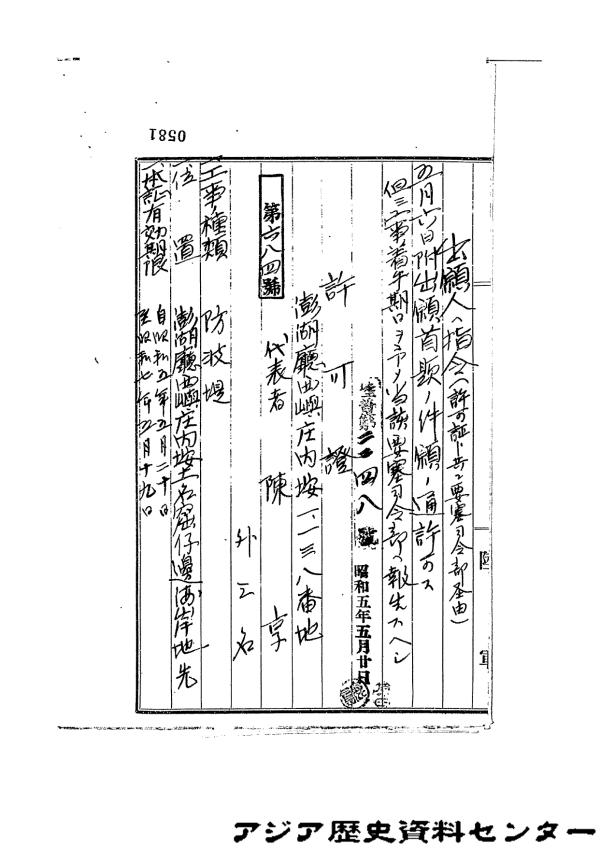 0581
出願人ヘ指令(許可証ト共ニ要塞司令部経由)
五月六日附出願首題ノ件願ノ通許可ス
但シ工事着手期日ヲ予メ当該要塞司令部ヘ報告スヘシ
陸軍
第二〇四八號 昭和五年五月廿日
許可證
澎湖廳西嶼庄内垵一、一三八番地
代表者 陳 享
外三名
第六八四號
一、工事ノ種類 防波堤
一、位置 澎湖廳西嶼庄内垵土名窟仔邊海岸地先
一、本證有効期限 自昭和五年五月二十日
至昭和七年五月十九日
アジア歴史資料センター